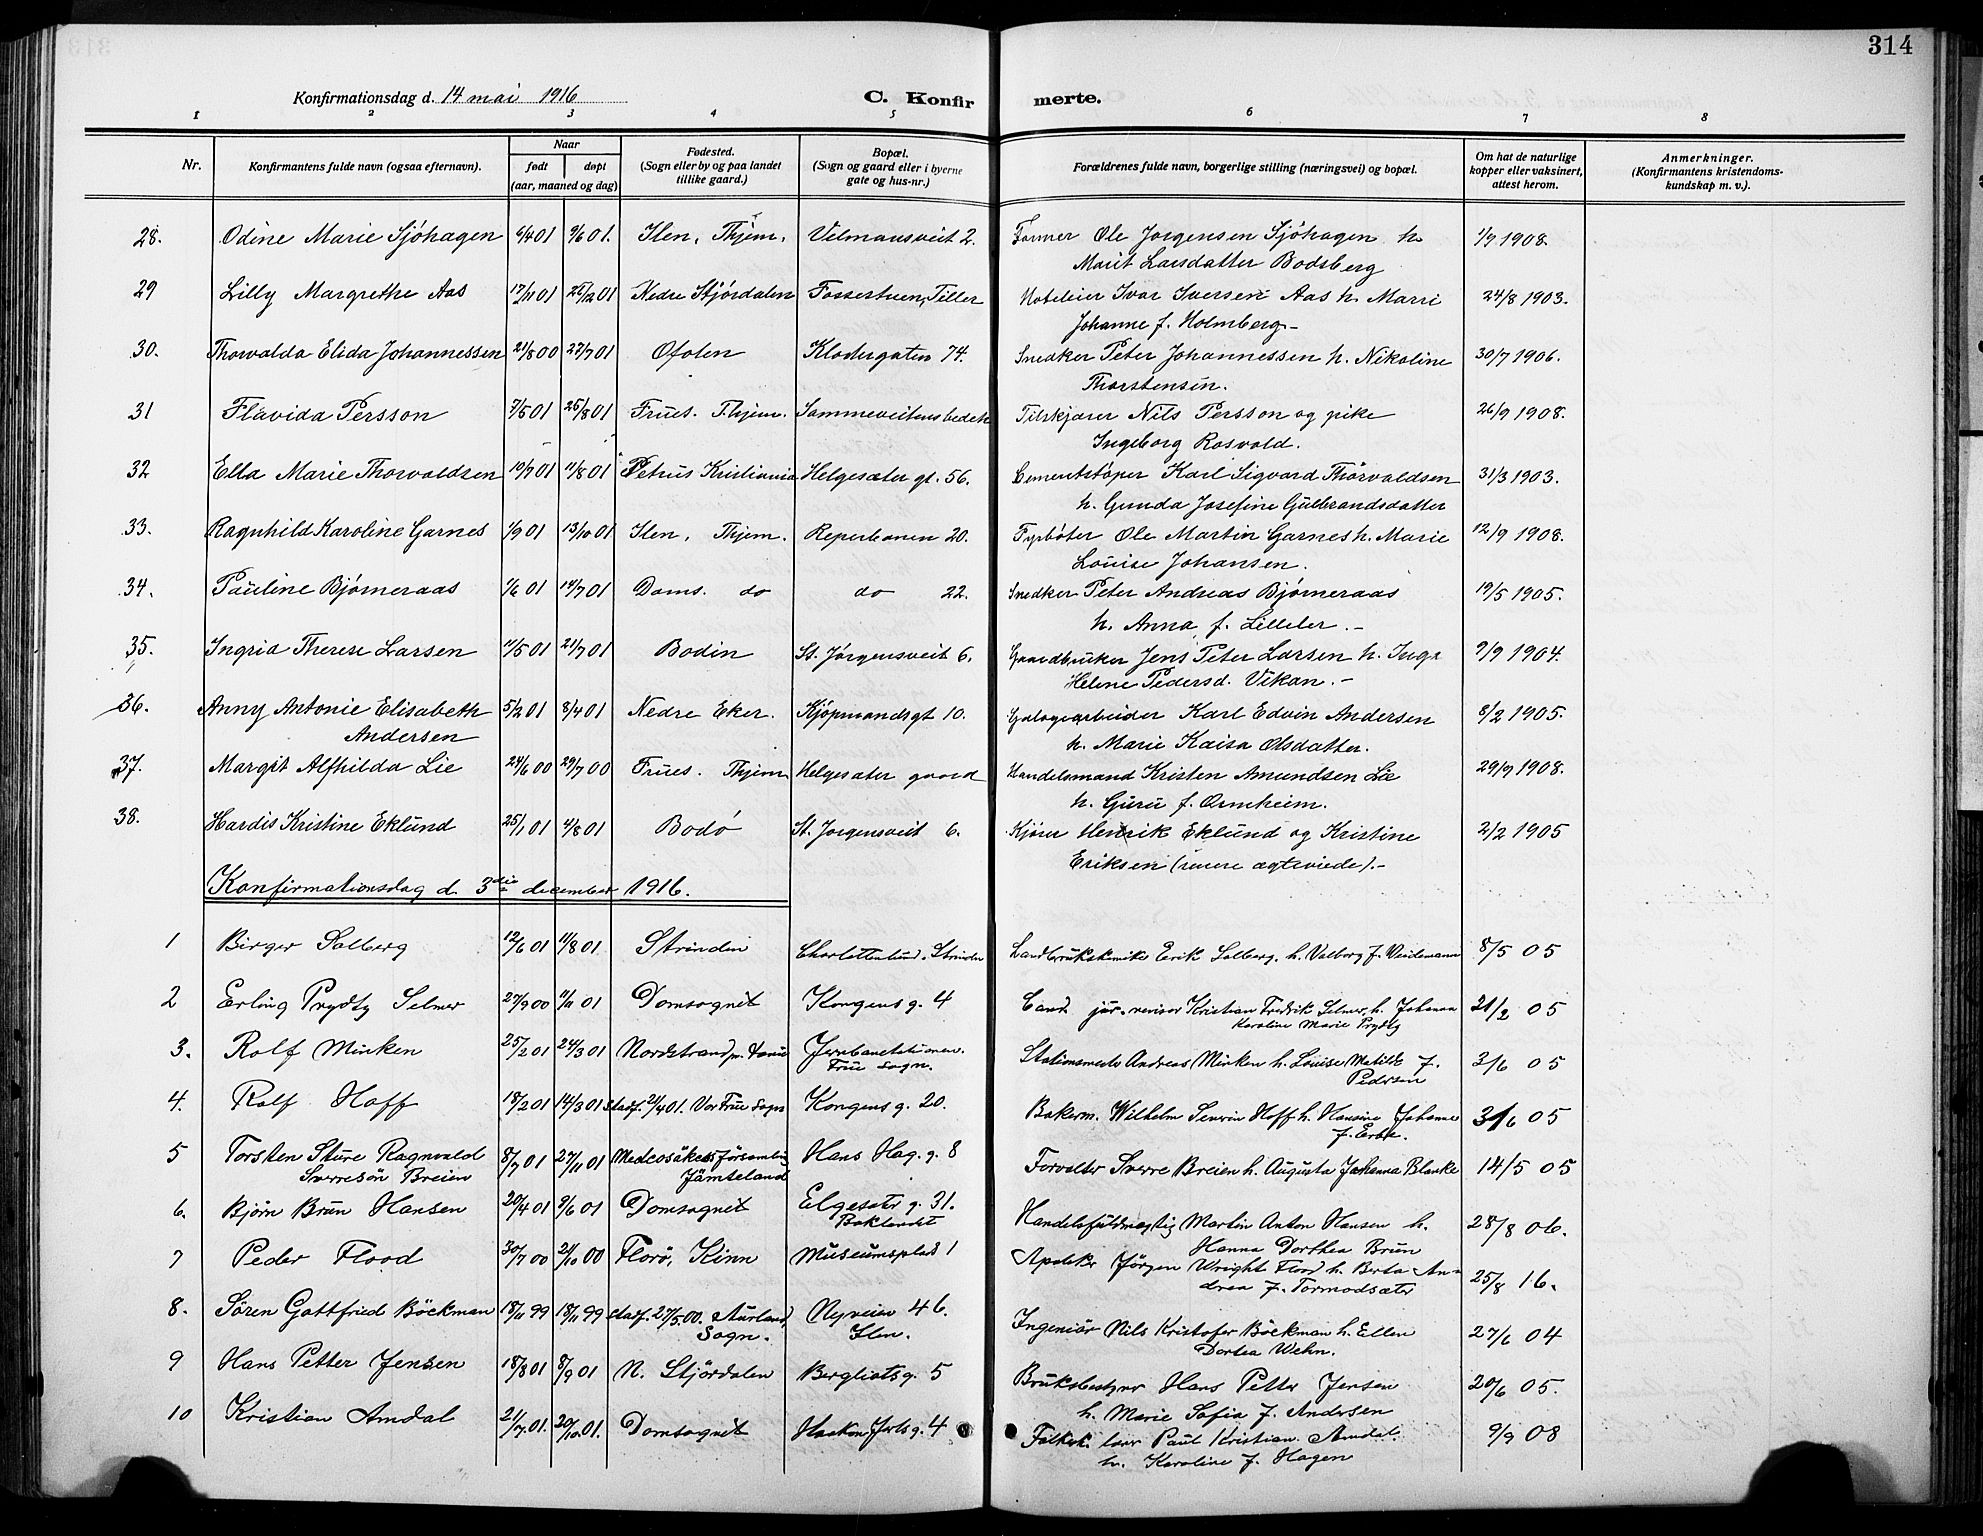 314
Konfirmationsdag d. 14 mai 1916
C. Konfirmerte.
1 2 3 4 5 6 7 8
Nr. Konfirmantens fulde navn (ogsaa efternavn). Naar født døpt (aar, maaned og dag) Fødested. (Sogn eller by og paa landet tillike gaard.) Bopæl. (Sogn og gaard eller i byerne gate og hus-nr.) Forældrenes fulde navn, borgerlige stilling (næringsvei) og bopæl. Om hat de naturlige kopper eller vaksinert, attest herom. Anmerkninger. (Konfirmantens kristendoms-kundskap m. v.).
28. Odine Marie Sjöhagen 6/4 01 9/6 01. Ilen, Thjem. Vilmansveit 2. Former Ole Jorgensen Sjöhagen h. 1/9 1908.
Marit Larsdatter Bodsberg
29 Lilly Margrethe Aas 17/11 01 25/12 01 Nedre Stjördalen Fossestuen, Tiller Hoteleier Ivar Iversen Aas h. Marie 24/8 1903.
Johanne f. Holmberg.-
30. Thorvalda Elida Johannessen 21/8 00 27/7 01 Ofoten Klostergaten 74. Snedker Peter Johannessen h. Nikoline 30/7 1906.
Thorstensen.
31 Flavida Persson 7/5 01 25/8 01 Frues. Thjem. Tilskjærer Nils Persson og pike 26/9 1908.
Ingeborg Rosvold.
32 Ella Marie Thorvaldsen 19/7 01 11/8 01 Petrus Kristiania Helgesæter gt. 56. Cementstøper Karl Sigvard Thorvaldsen 31/3 1903.
h. Gunda Josefine Gulbrandsdatter
33. Ragnhild Karoline Garnes 1/9 01 13/10 01 Ilen, Thjem. Reperbanen 20. Fyrbøter Ole Martin Garnes h. Marie 12/9 1908.
Louise Johansen.
34. Pauline Bjørneraas 1/6 01 14/7 01 Doms. do do 22. Snedker Peter Andreas Bjørneraas 19/5 1905.
h. Anna f. Lilleler.-
35. Ingrid Therese Larsen 11/5 01 21/7 01 Bodin St. Jørgensveit 6. Gaardbruker Jens Peter Larsen h. Inga 9/9 1904.
Helene Pedersd. Vikan.-
36. Anny Antonie Elisabeth 5/2 01 8/4 01 Nedre Eker. Kjøpmandsgt 10. Galogearbeider Karl Edvin Andersen 8/2 1905.
Andersen h. Marie Kaisa Olsdatter.
37. Margit Alfhilda Lie 24/6 00 29/7 00 Frues. Thjem Helgesæter gaard Handelsmand Kristen Amundsen Lie 29/9 1908.
h. Guru f. Ormheim.
38. Hardis Kristine Eklund 25/1 01 4/8 01 Bodø St. Jørgensveit 6. Kjører Henrik Eklund og Kristine 2/2 1905
Eriksen (senere ægteviede).-
Konfirmationsdag d. 3die december 1916.
1 Birger Solberg 12/6 01 11/8 01 Strinden Charlottenlund, Strinden Landbrukskemiker Eirik Solberg. h. Valborg f. Weidemann 8/5 05
2 Erling Prydtz Selmer 27/9 00 1/11 01 Domsognet Kongens g. 4 Cand jur. revisor Kristian Fredrik Selmer h. Johanna 21/2 05
Karoline Marie Prydtz
3. Rolf Minken 25/2 01 24/3 01 Jernbanestationen. Stationsmester Andreas Minken h. Louise Matilde f. 3/6 05
Frue sogn. Pedersen
4. Rolf Hoff 18/2 01 14/3 01 stadf. 21/4 01. Vor Frue Sogn Kongens g. 20. Bakerm. Wilhelm Severin Hoff h. Hansine Johanne 3/6 05
f. Erbe.
5 Torsten Sture Ragnvald 8/7 01 27/11 01 Hans Hag. g. 8 Forvalter Sverre Breien h. Augusta Johanna Blanke 14/5 05
Sverresön Breien Jämteland
6. Bjørn Brun Hansen 20/4 01 9/6 01 Domsognet Elgesæter g. 31. Handelsfuldmægtig Martin Anton Hansen h. 28/8 06.
Baklandet Hanna Dorthea Brun
7 Peder Flood 30/7 00 21/10 00 Florø, Kinn Museumsplads 1 Apoteker Jörgen Wright Flood h. Berta An- 25/8 16.
drea f. Tormodsæter
8. Sören Gottfried Böckman 18/11 99 18/11 99 stadf. 27/5 00. Aurland, Nyveien 46. Ingeniör Nils Kristofer Böckman h. Ellen 27/6 04
Sogn. Ilen. Dortea Wehn.
9 Hans Petter Jensen 18/8 01 8/9 01 N. Stjördalen Bergliots g. 5 Bruksbestyrer Hans Petter Jensen 20/6 05.
h. Marie Sofia f. Andersen
10 Kristian Amdal 21/7 01. 20/10 01. Domsognet Haakon Jarls g. 4 Folksk. lærer Paul Kristian Amdal 9/9 08
h. Karoline f. Hagen